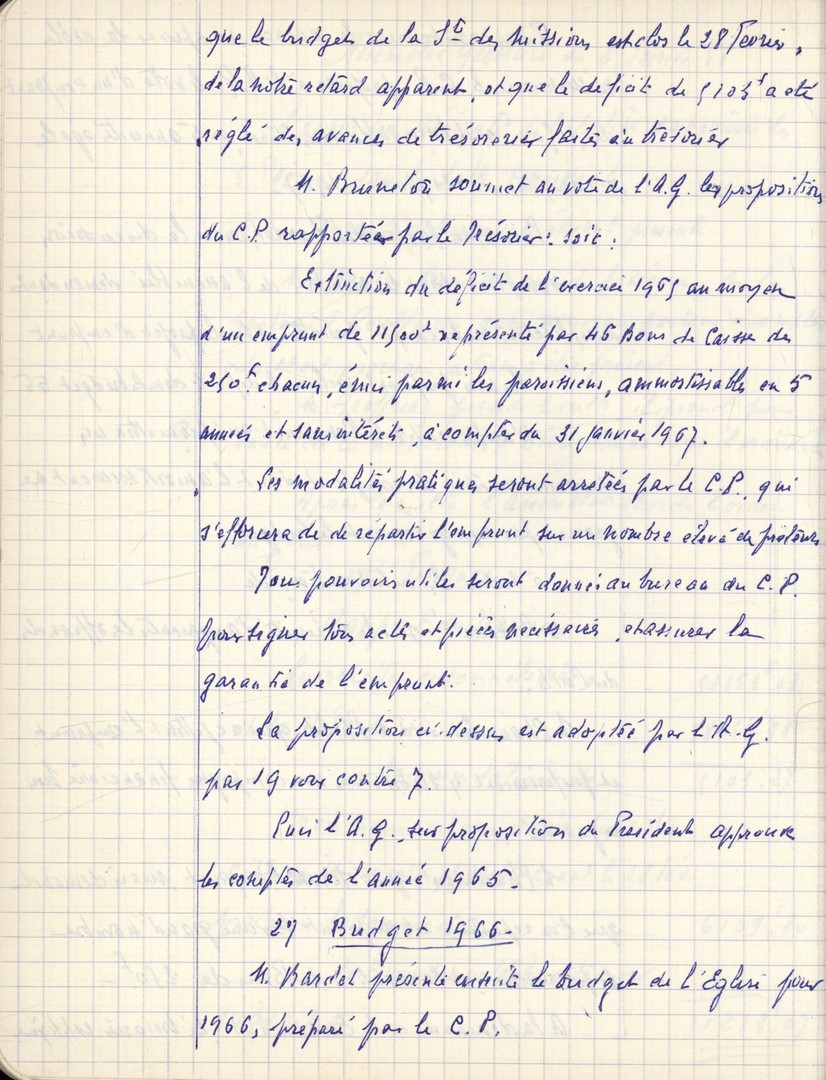 que le budget de la Sté des Missions est clos le 28 Février,
de là notre retard apparent, et que le déficit de 5103f a été
réglé des avances de trésorerie faites au trésorier
M. Bruneton soumet au vote de l'A.G. les propositions
du C.P. rapportées par le Trésorier : soit :
Extinction du déficit de l'exercice 1965 au moyen
d'un emprunt de 11500f représenté par 46 Bons de Caisse de
250f chacun, émis parmi les paroissiens, ammortissables en 5
années et sans intérêts, à compter du 31 janvier 1967.
Les modalités pratiques seront arretées par le C.P., qui
s'efforcera de de répartir l'emprunt sur un nombre élevé de prêteurs
Tous pouvoirs utiles seront donnés au bureau du C.P.
pour signer tous actes et pièces nécessaires, et assurer la
garantie de l'emprunt.
La proposition ci-dessus est adoptée par l'A.G.
par 19 voix contre 7.
Puis l'A.G., sur proposition du Président approuve
les comptes de l'année 1965.
2) Budget 1966.
M. Bardet présente ensuite le budget de l'Eglise pour
1966, préparé par le C.P.